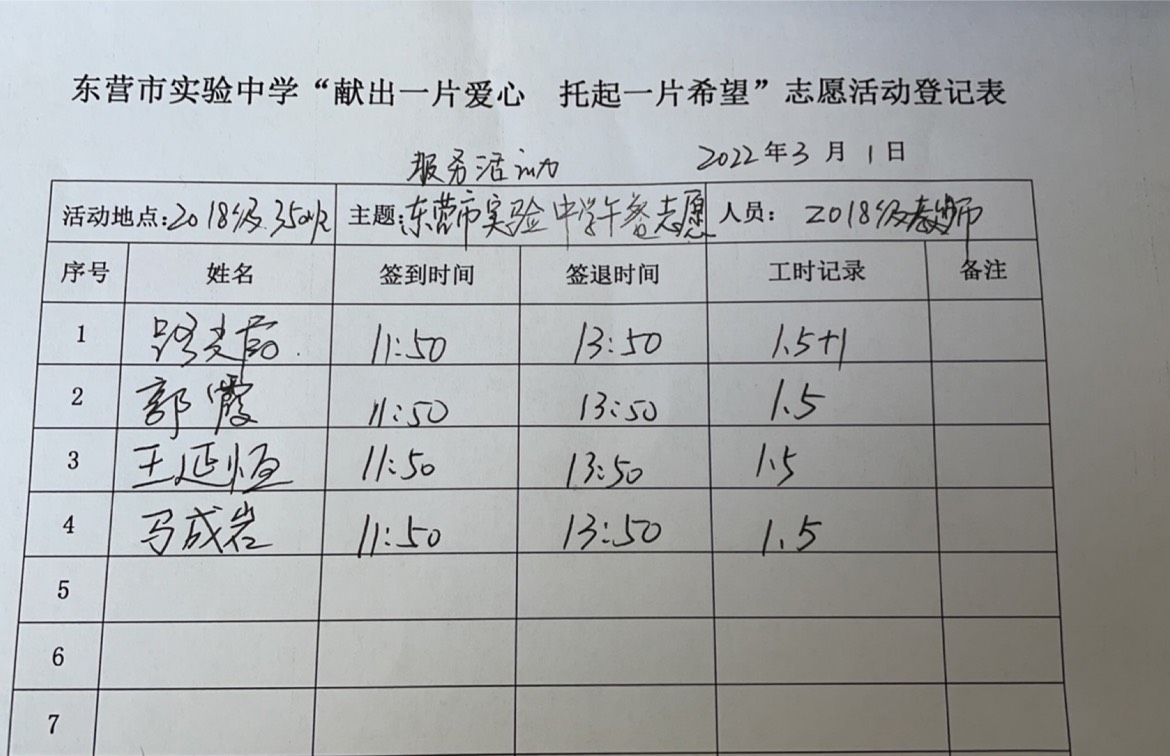 东营市实验中学“献出一片爱心 托起一片希望”志愿活动登记表
2022年3月1日
服务活动
活动地点:2018级 主题:东营市实验中学午餐志愿 人员: 2018级教师
序号 姓名 签到时间 签退时间 工时记录 备注
1 11:50 13:50 1.5+1
2 郭霞 11:50 13:50 1.5
3 王延恒 11:50 13:50 1.5
4 马成岩 11:50 13:50 1.5
5
6
7